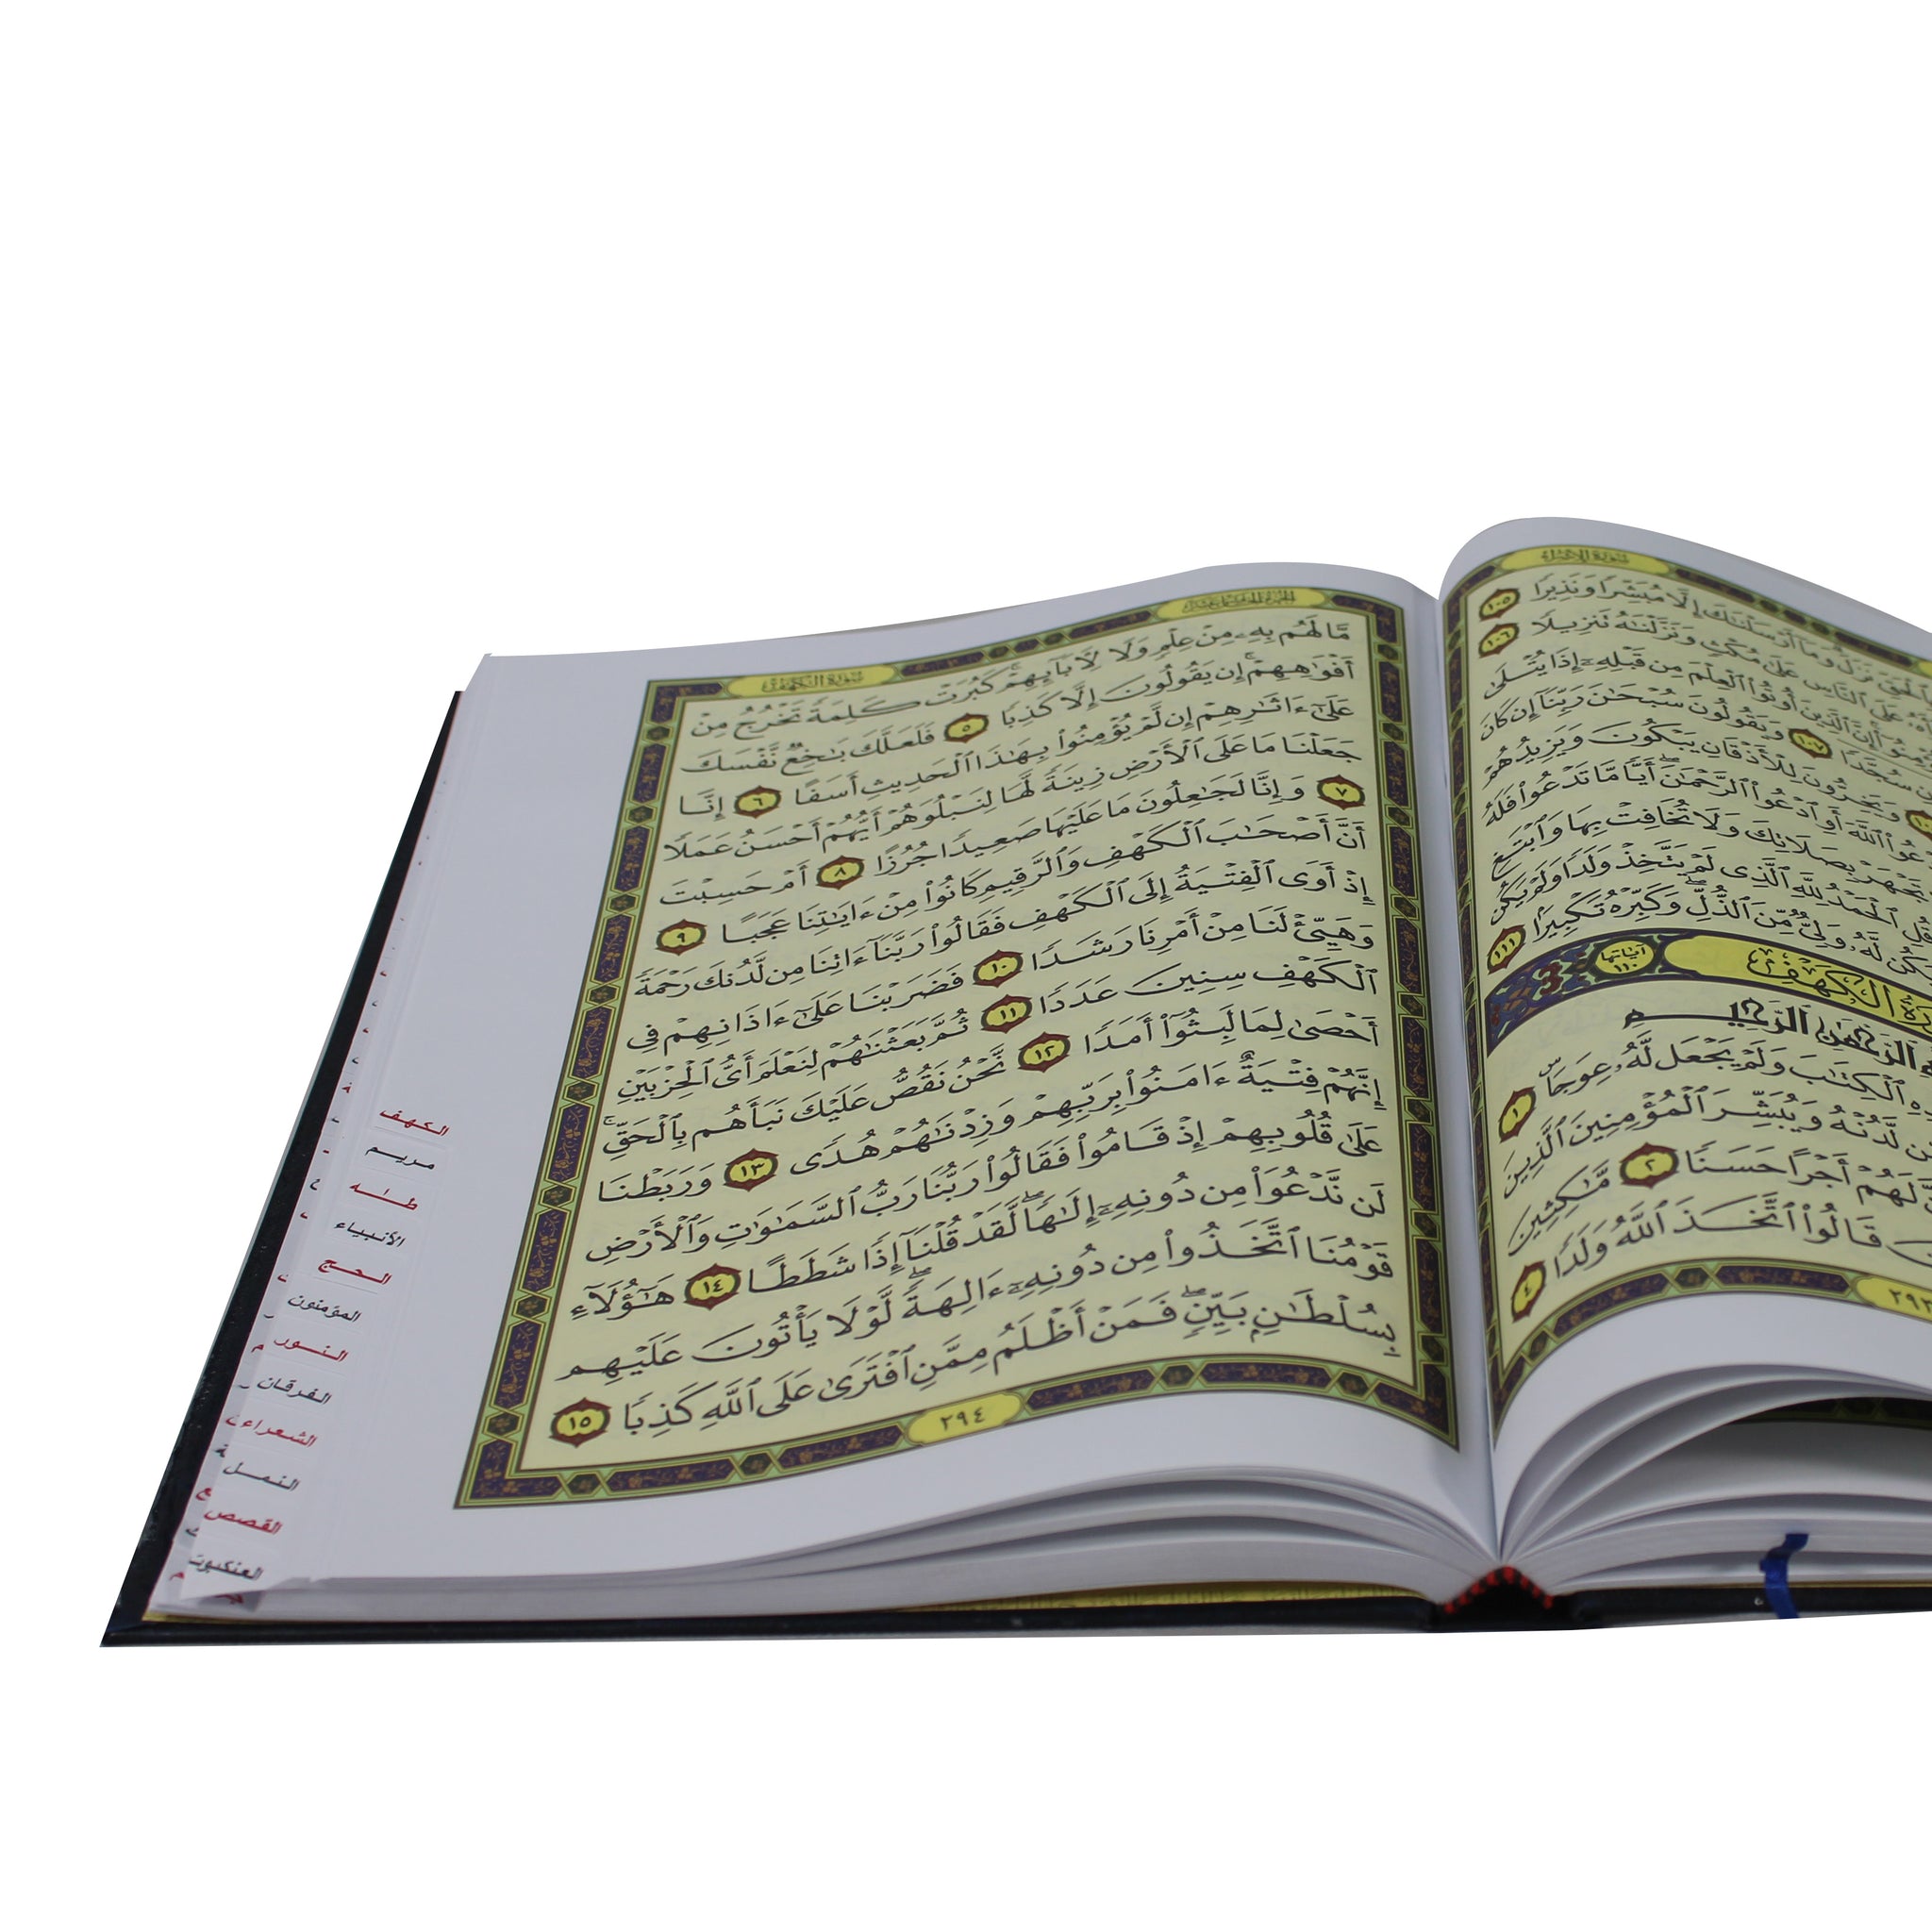 سورة الإسراء
نَزَلَ وَمَآ أَرْسَلْنَٰكَ إِلَّا مُبَشِّرًا وَنَذِيرًا ١٠٥
عَلَى ٱلنَّاسِ عَلَىٰ مُكْثٍ وَنَزَّلْنَٰهُ تَنزِيلًا ١٠٦
إِنَّ ٱلَّذِينَ أُوتُوا۟ ٱلْعِلْمَ مِن قَبْلِهِۦٓ إِذَا يُتْلَىٰ
سُجَّدًا ١٠٧ وَيَقُولُونَ سُبْحَٰنَ رَبِّنَآ إِن كَانَ
وَيَخِرُّونَ لِلْأَذْقَانِ يَبْكُونَ وَيَزِيدُهُمْ
ٱللَّهَ أَوِ ٱدْعُوا۟ ٱلرَّحْمَٰنَ ۖ أَيًّا مَّا تَدْعُوا۟ فَلَهُ
تَجْهَرْ بِصَلَاتِكَ وَلَا تُخَافِتْ بِهَا وَٱبْتَغِ
ٱلْحَمْدُ لِلَّهِ ٱلَّذِى لَمْ يَتَّخِذْ وَلَدًا وَلَمْ يَكُن
لَّهُۥ وَلِىٌّ مِّنَ ٱلذُّلِّ ۖ وَكَبِّرْهُ تَكْبِيرًۢا ١١١
الكهف آياتها ١١٠
ٱلرَّحْمَٰنِ ٱلرَّحِيمِ
ٱلْكِتَٰبَ وَلَمْ يَجْعَل لَّهُۥ عِوَجَا ۜ ١
لَّدُنْهُ وَيُبَشِّرَ ٱلْمُؤْمِنِينَ ٱلَّذِينَ
لَهُمْ أَجْرًا حَسَنًا ٢ مَّٰكِثِينَ
قَالُوا۟ ٱتَّخَذَ ٱللَّهُ وَلَدًا ٤
٢٩٣
سورة الكهف
مَّا لَهُم بِهِۦ مِنْ عِلْمٍ وَلَا لِـَٔابَآئِهِمْ ۚ كَبُرَتْ كَلِمَةً تَخْرُجُ مِنْ
أَفْوَٰهِهِمْ ۚ إِن يَقُولُونَ إِلَّا كَذِبًا ٥ فَلَعَلَّكَ بَٰخِعٌ نَّفْسَكَ
عَلَىٰٓ ءَاثَٰرِهِمْ إِن لَّمْ يُؤْمِنُوا۟ بِهَٰذَا ٱلْحَدِيثِ أَسَفًا ٦ إِنَّا
جَعَلْنَا مَا عَلَى ٱلْأَرْضِ زِينَةً لَّهَا لِنَبْلُوَهُمْ أَيُّهُمْ أَحْسَنُ عَمَلًا
٧ وَإِنَّا لَجَٰعِلُونَ مَا عَلَيْهَا صَعِيدًا جُرُزًا ٨ أَمْ حَسِبْتَ
أَنَّ أَصْحَٰبَ ٱلْكَهْفِ وَٱلرَّقِيمِ كَانُوا۟ مِنْ ءَايَٰتِنَا عَجَبًا ٩
إِذْ أَوَى ٱلْفِتْيَةُ إِلَى ٱلْكَهْفِ فَقَالُوا۟ رَبَّنَآ ءَاتِنَا مِن لَّدُنكَ رَحْمَةً
وَهَيِّئْ لَنَا مِنْ أَمْرِنَا رَشَدًا ١٠ فَضَرَبْنَا عَلَىٰٓ ءَاذَانِهِمْ فِى
ٱلْكَهْفِ سِنِينَ عَدَدًا ١١ ثُمَّ بَعَثْنَٰهُمْ لِنَعْلَمَ أَىُّ ٱلْحِزْبَيْنِ
أَحْصَىٰ لِمَا لَبِثُوٓا۟ أَمَدًا ١٢ نَّحْنُ نَقُصُّ عَلَيْكَ نَبَأَهُم بِٱلْحَقِّ ۚ
إِنَّهُمْ فِتْيَةٌ ءَامَنُوا۟ بِرَبِّهِمْ وَزِدْنَٰهُمْ هُدًى ١٣ وَرَبَطْنَا
عَلَىٰ قُلُوبِهِمْ إِذْ قَامُوا۟ فَقَالُوا۟ رَبُّنَا رَبُّ ٱلسَّمَٰوَٰتِ وَٱلْأَرْضِ
لَن نَّدْعُوَا۟ مِن دُونِهِۦٓ إِلَٰهًا ۖ لَّقَدْ قُلْنَآ إِذًا شَطَطًا ١٤ هَٰٓؤُلَآءِ
قَوْمُنَا ٱتَّخَذُوا۟ مِن دُونِهِۦٓ ءَالِهَةً ۖ لَّوْلَا يَأْتُونَ عَلَيْهِم
بِسُلْطَٰنٍۭ بَيِّنٍ ۖ فَمَنْ أَظْلَمُ مِمَّنِ ٱفْتَرَىٰ عَلَى ٱللَّهِ كَذِبًا ١٥
٢٩٤
الكهف
مريم
طه
الأنبياء
الحج
المؤمنون
النور
الفرقان
الشعراء
النمل
القصص
العنكبوت